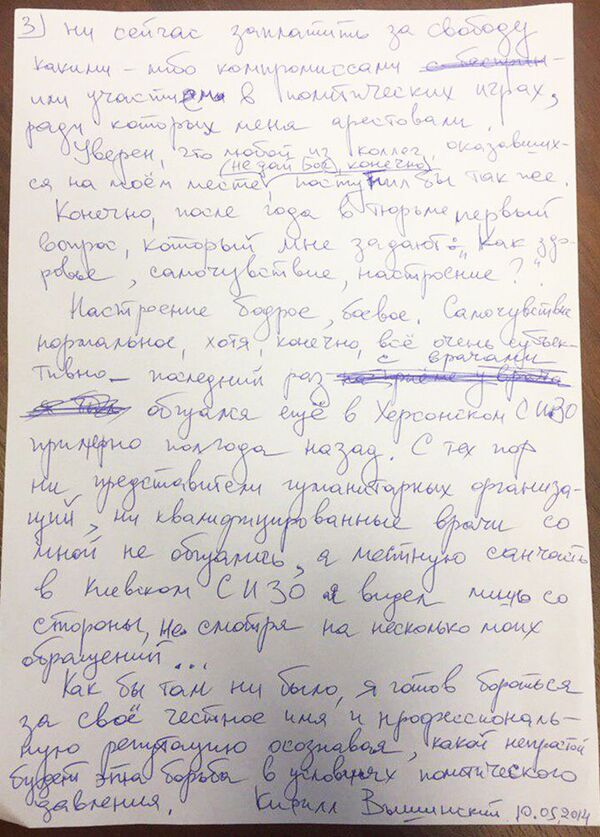 3) ни сейчас заплатить за свободу
какими-либо компромиссами
или участием в политических играх,
ради которых меня арестовали.
Уверен, что любой из коллег, оказавших-
(не дай Бог), конечно,
ся на моём месте, поступил бы так же.
Конечно, после года в тюрьме первый
вопрос, который мне задают: „Как здо-
ровье, самочувствие, настроение?“
Настроение бодрое, боевое. Самочувствие
нормальное, хотя, конечно, всё очень субъек-
с врачами
тивно – последний раз на приёме у врача
общался ещё в Херсонском СИЗО
примерно полгода назад. С тех пор
ни представители гуманитарных организа-
ций, ни квалифицированные врачи со
мной не общались, а местную санчасть
в Киевском СИЗО я видел лишь со
стороны, не смотря на несколько моих
обращений...
Как бы там ни было, я готов бороться
за своё честное имя и профессиональ-
ную репутацию осознавая, какой непростой
будет эта борьба в условиях политического
давления. Кирилл Вышинский 10.05.2019